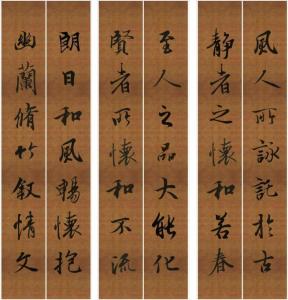 風人所詠託於古
靜者之懷和若春
至人之品大能化
賢者所懷和不流
朗日和風暢懷抱
幽蘭脩竹敘情文